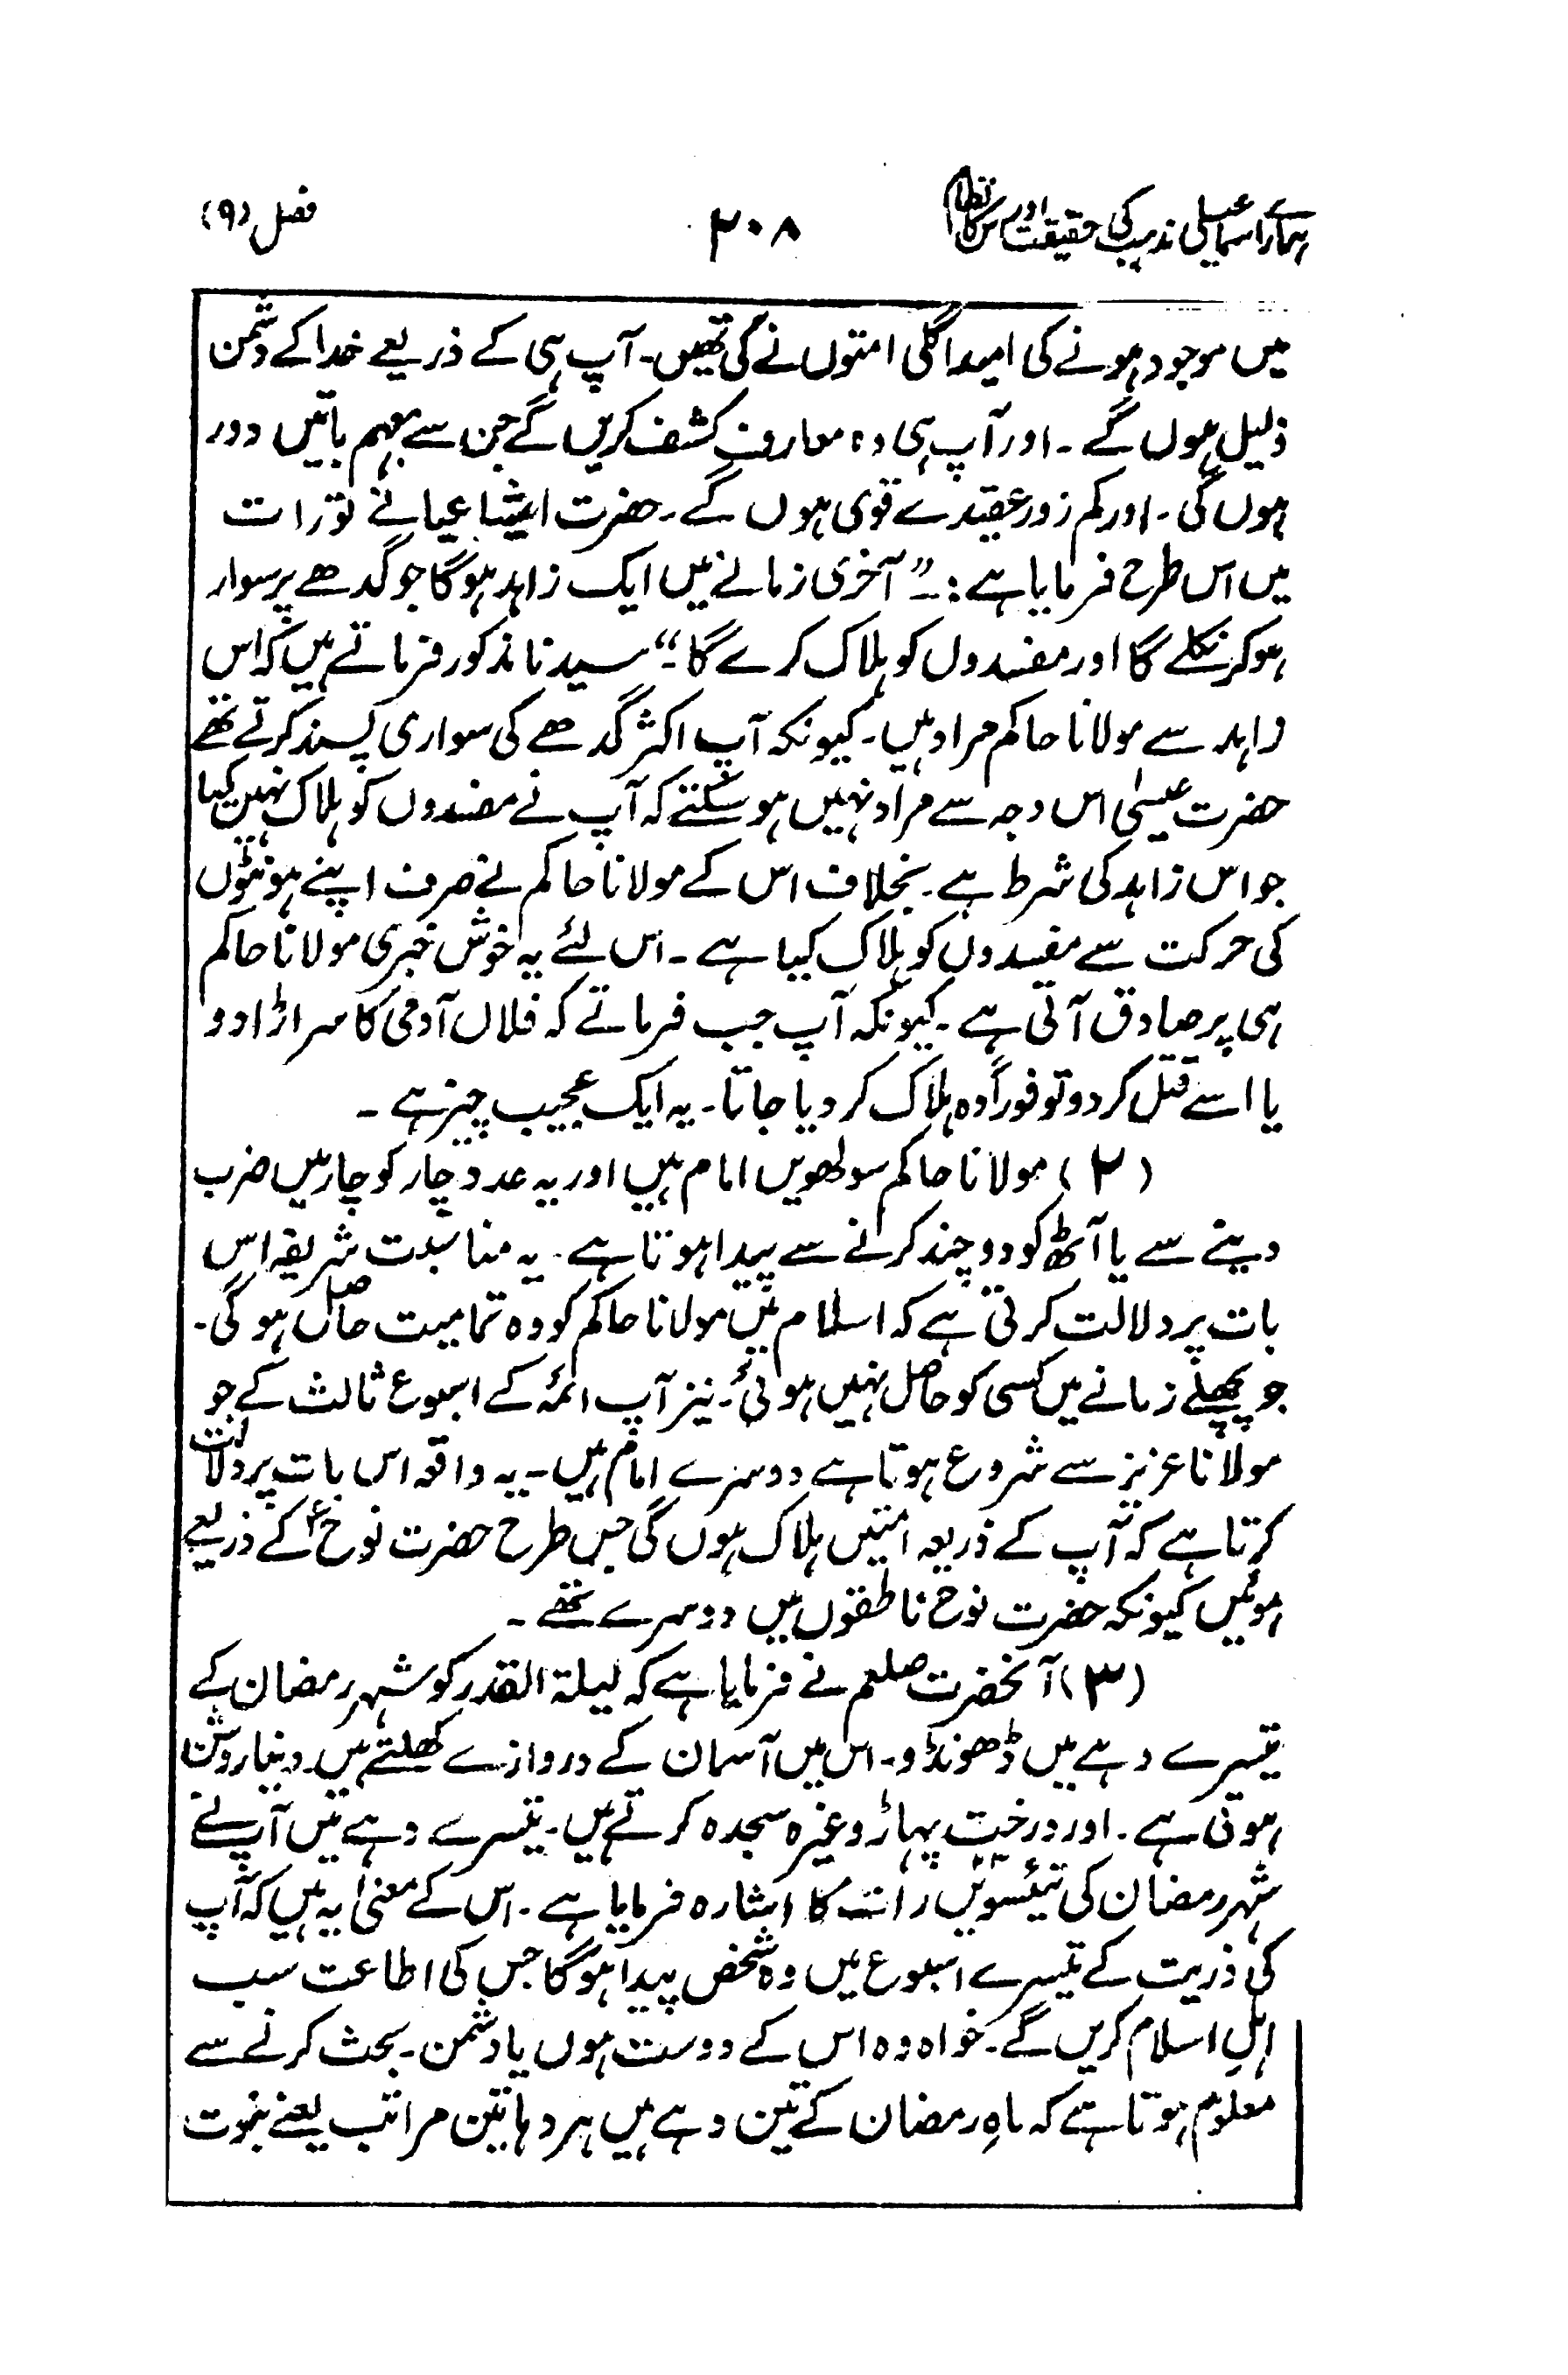 ہمارے اسماعیلی مذہب کی حقیقت اور اس کا نظام ۲۰۸ فصل (۹)
میں موجود ہونے کی امید اگلی امتوں نے کی تھیں۔ آپ ہی کے ذریعے خدا کے دشمن
ذلیل ہوں گے۔ اور آپ ہی وہ معارف کشف کریں گے جن سے مبہم باتیں دور
ہوں گی۔ اور کم زور عقیدے قوی ہوں گے۔ حضرت اشیاعیا نے تورات
میں اس طرح فرمایا ہے :۔ "آخری زمانے میں ایک زاہد ہوگا جو گدھے پر سوار
ہو کر نکلے گا اور مفسدوں کو ہلاک کرے گا۔" سیدنا مذکور فرماتے ہیں کہ اس
زاہد سے مولانا حاکم مراد ہیں۔ کیونکہ آپ اکثر گدھے کی سواری پسند کرتے تھے
حضرت عیسیٰ اس وجہ سے مراد نہیں ہو سکتے کہ آپ نے مفسدوں کو ہلاک نہیں کیا
جو اس زاہد کی شرط ہے۔ بخلاف اس کے مولانا حاکم نے صرف اپنے ہونٹوں
کی حرکت سے مفسدوں کو ہلاک کیا ہے۔ اس لئے یہ خوش خبری مولانا حاکم
ہی پر صادق آتی ہے۔ کیونکہ آپ جب فرماتے کہ فلاں آدمی کا سر اڑا دو
یا اسے قتل کر دو تو فوراً وہ ہلاک کر دیا جاتا۔ یہ ایک عجیب چیز ہے۔
(۲) مولانا حاکم سولھویں امام ہیں اور یہ عدد چار کو چار میں ضرب
دینے سے یا آٹھ کو دو چند کرنے سے پیدا ہوتا ہے۔ یہ مناسبت شریفہ اس
بات پر دلالت کرتی ہے کہ اسلام میں مولانا حاکم کو وہ تمامیت حاصل ہوگی۔
جو پچھلے زمانے میں کسی کو حاصل نہیں ہوئی۔ نیز آپ ائمہ کے اسبوع ثالث کے جو
مولانا عزیز سے شروع ہوتا ہے دوسرے امام ہیں۔ یہ واقعہ اس بات پر دلالت
کرتا ہے کہ آپ کے ذریعہ امتیں ہلاک ہوں گی جس طرح حضرت نوحؑ کے ذریعے
ہوئیں کیونکہ حضرت نوح ناطقوں میں دوسرے تھے۔
(۳) آنحضرت صلعم نے فرمایا ہے کہ لیلۃ القدر کو شہر رمضان کے
تیسرے دہے میں ڈھونڈو۔ اس میں آسمان کے دروازے کھلتے ہیں۔ دنیا روشن
ہوتی ہے۔ اور درخت پہاڑ وغیرہ سجدہ کرتے ہیں۔ تیسرے دہے میں آپ نے
شہر رمضان کی تیئسویں رات کا اشارہ فرمایا ہے۔ اس کے معنی یہ ہیں کہ آپ
کی ذریت کے تیسرے اسبوع میں وہ شخص پیدا ہوگا جس کی اطاعت سب
اہلِ اسلام کریں گے۔ خواہ وہ اس کے دوست ہوں یا دشمن۔ بحث کرنے سے
معلوم ہوتا ہے کہ ماہِ رمضان کے تین دہے ہیں ہر دہا تین مراتب یعنے نبوت